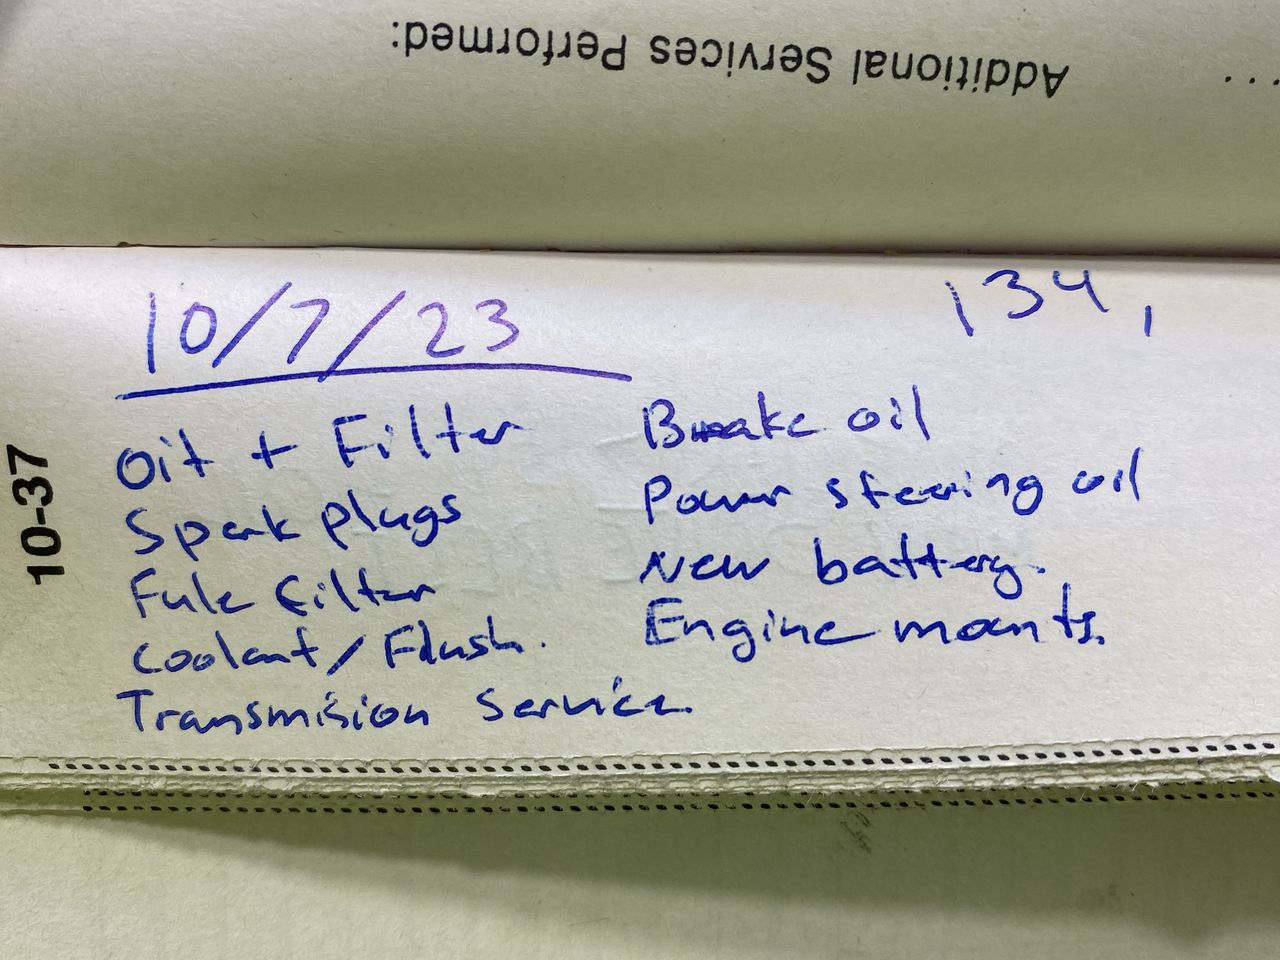 Additional Services Performed:
...
10/7/23
134,
Oil + Filter
Speak plugs
Fule filter
Coolant/Flush.
Transmision Service.
Brake oil
Power steering oil
New battery.
Engine mounts.
10-37